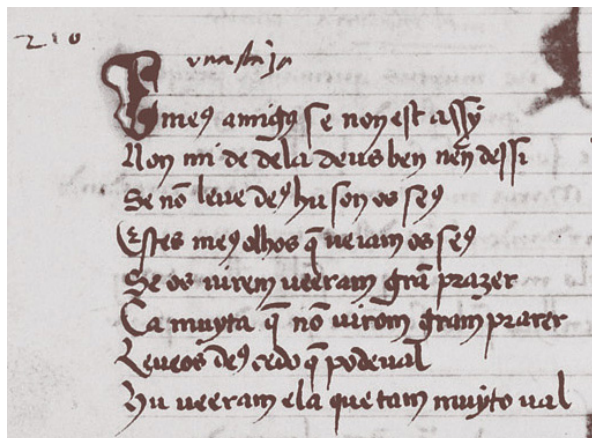 210
E meꝯ amigꝯ se non est assy
Non mi de dela deus ben nen̄ dessi
Se nō leue deꝯ hu son os seꝯ
Estes meꝯ olhos q̄ ueiam os seꝯ
Se os uirem ueeram grā prazer
Ca muyta q̄ nō uirom gram prazer
Leueos deꝯ cedo q̄ podeual
Hu ueeram ela que tam muyto ual